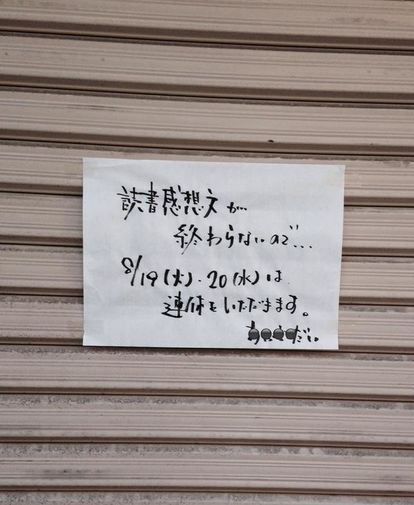 読書感想文が
終わらないので...
8/19(火)・20(水)は
連休をいただきます。